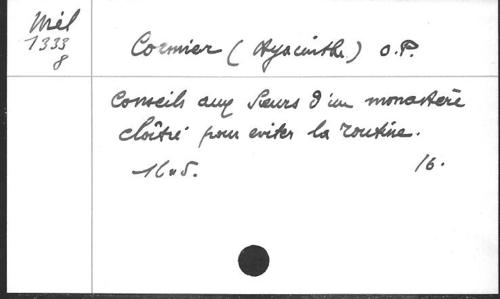 Mél
1333
8
Cormier (Hyacinthe) O.P.
Conseils aux Sœurs d'un monastère
cloîtré pour eviter la routine.
16.